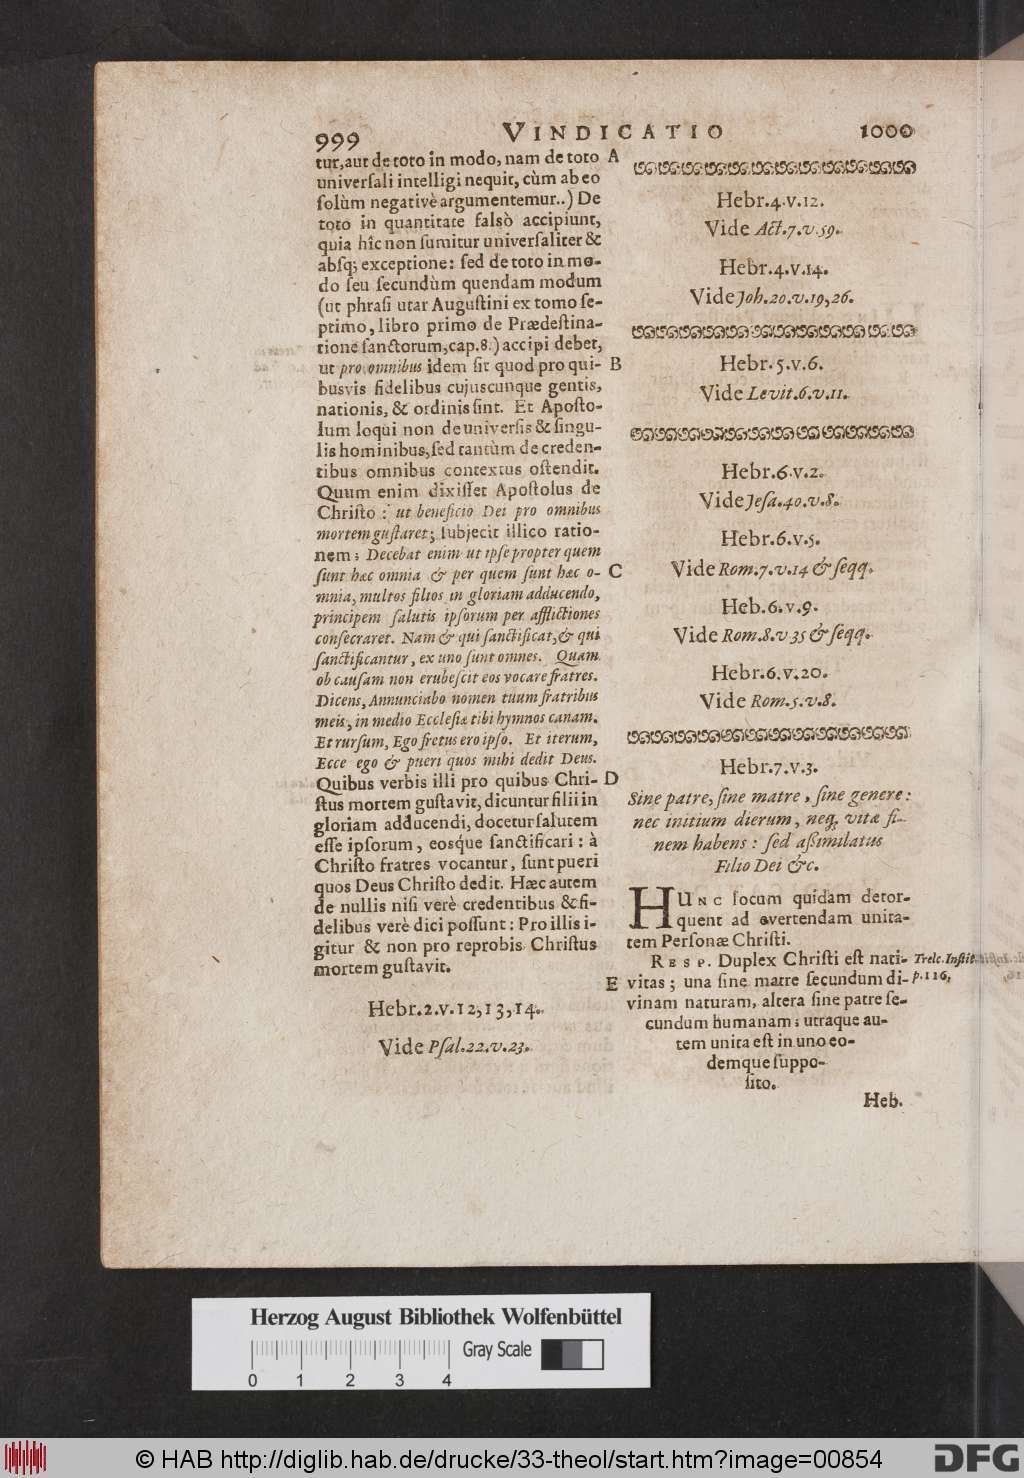 999 VINDICATIO 1000
tur, aut de toto in modo, nam de toto A
universali intelligi nequit, cùm ab eo
solùm negativè argumentemur..) De
toto in quantitate falsò accipiunt,
quia hîc non sumitur universaliter &
absq; exceptione: sed de toto in mo-
do seu secundùm quendam modum
(ut phrasi utar Augustini ex tomo se-
ptimo, libro primo de Prædestina-
tione sanctorum, cap. 8.) accipi debet,
ut pro omnibus idem sit quod pro qui- B
busvis fidelibus cujuscunque gentis,
nationis, & ordinis sint. Et Aposto-
lum loqui non de universis & singu-
lis hominibus, sed tantùm de creden-
tibus omnibus contextus ostendit.
Quum enim dixisset Apostolus de
Christo: ut beneficio Dei pro omnibus
mortem gustaret; subjecit illico ratio-
nem: Decebat enim ut ipse propter quem
sunt hæc omnia & per quem sunt hæc o- C
mnia, multos filios in gloriam adducendo,
principem salutis ipsorum per afflictiones
consecraret. Nam & qui sanctificat, & qui
sanctificantur, ex uno sunt omnes. Quam
ob causam non erubescit eos vocare fratres.
Dicens, Annunciabo nomen tuum fratribus
meis, in medio Ecclesiæ tibi hymnos canam.
Et rursum, Ego fretus ero ipso. Et iterum,
Ecce ego & pueri quos mihi dedit Deus.
Quibus verbis illi pro quibus Chri- D
stus mortem gustavit, dicuntur filii in
gloriam adducendi, docetur salutem
esse ipsorum, eosq́ue sanctificari: à
Christo fratres vocantur, sunt pueri
quos Deus Christo dedit. Hæc autem
de nullis nisi verè credentibus & fi-
delibus verè dici possunt: Pro illis i-
gitur & non pro reprobis Christus
mortem gustavit.
E
Hebr. 2. v. 12, 13, 14.
Vide Psal. 22. v. 23.
Hebr. 4. v. 12.
Vide Act. 7. v. 59.
Hebr. 4. v. 14.
Vide Joh. 20. v. 19, 26.
Hebr. 5. v. 6.
Vide Levit. 6. v. 11.
Hebr. 6. v. 2.
Vide Jesa. 40. v. 8.
Hebr. 6. v. 5.
Vide Rom. 7. v. 14 & seqq.
Heb. 6. v. 9.
Vide Rom. 8. v 35 & seqq.
Hebr. 6. v. 20.
Vide Rom. 5. v. 8.
Hebr. 7. v. 3.
Sine patre, sine matre, sine genere:
nec initium dierum, neq; vitæ fi-
nem habens: sed assimilatus
Filio Dei &c.
HUNC locum quidam detor-
quent ad evertendam unita-
tem Personæ Christi.
RESP. Duplex Christi est nati- Trelc. Instit.
vitas; una sine matre secundum di- p. 116,
vinam naturam, altera sine patre se-
cundum humanam: utraque au-
tem unita est in uno eo-
demque suppo-
sito.
Heb.
Herzog August Bibliothek Wolfenbüttel
Gray Scale
0 1 2 3 4
© HAB http://diglib.hab.de/drucke/33-theol/start.htm?image=00854
DFG